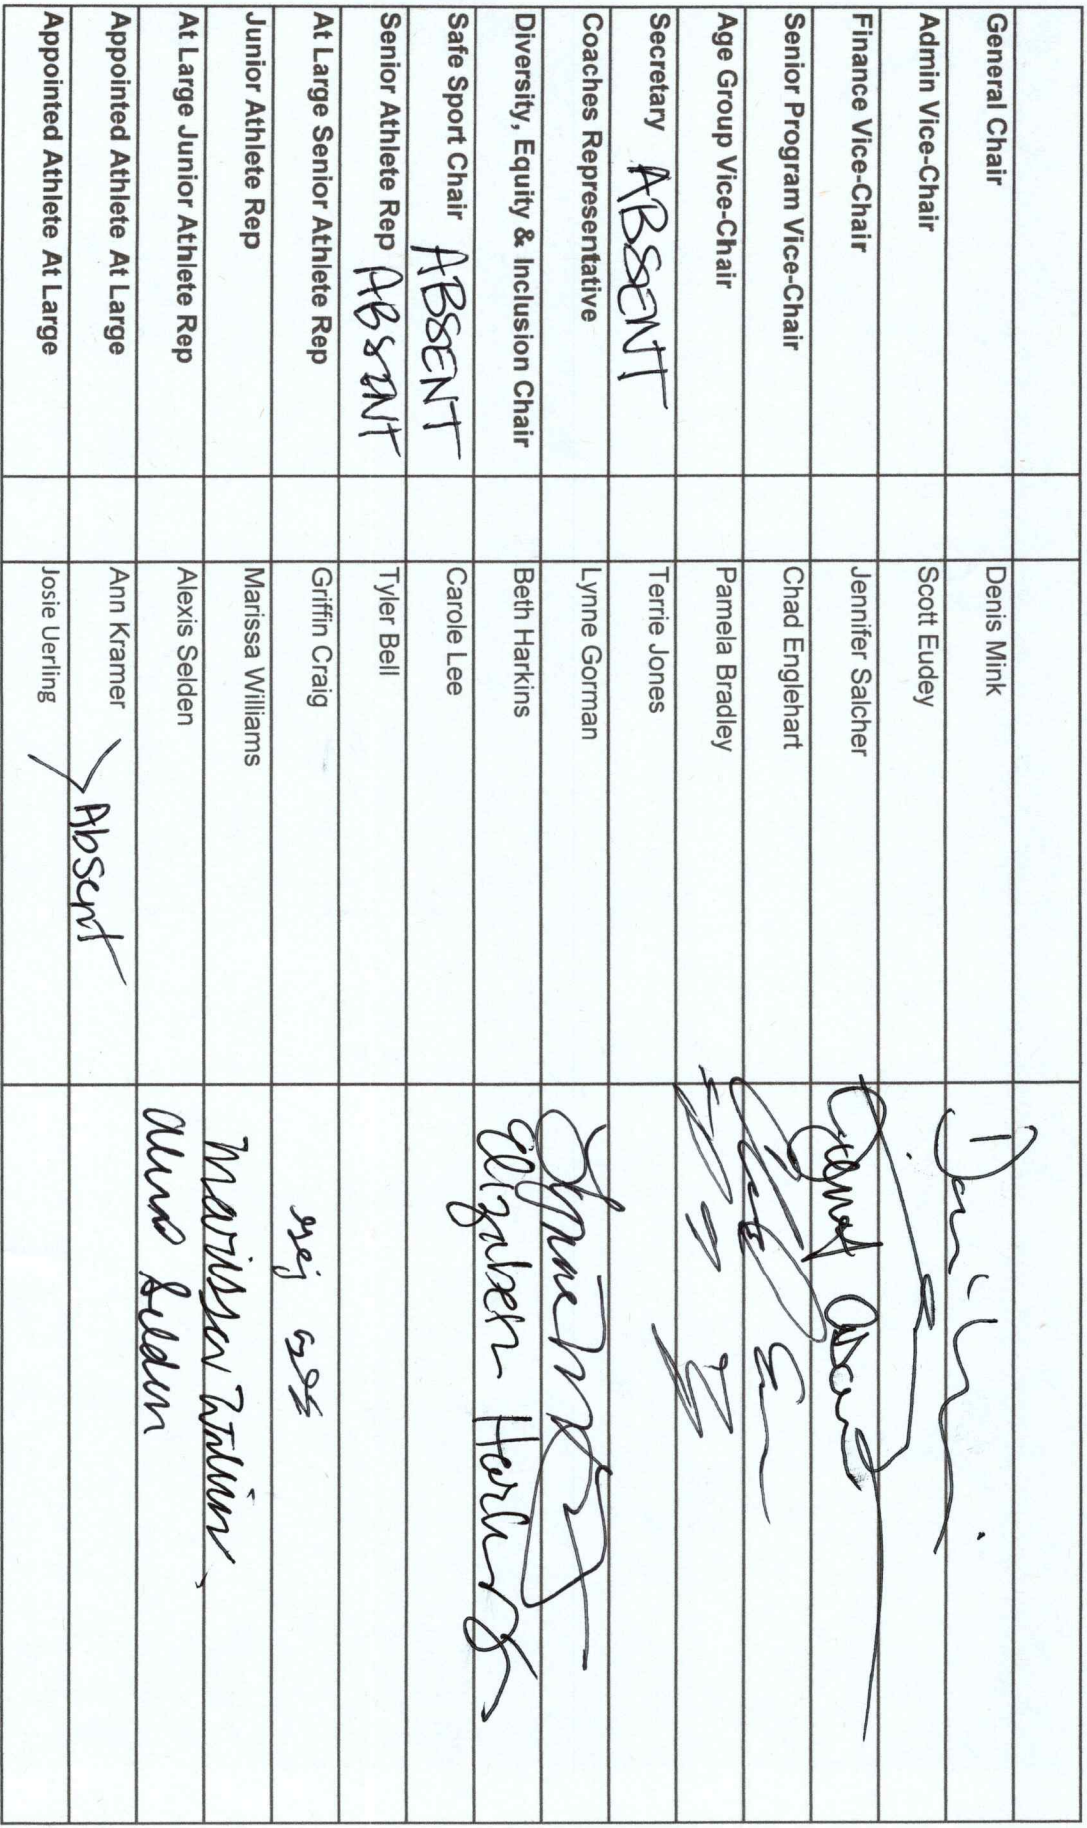 General Chair Denis Mink
Admin Vice-Chair Scott Eudey
Finance Vice-Chair Jennifer Salcher
Senior Program Vice-Chair Chad Englehart
Age Group Vice-Chair Pamela Bradley
Secretary ABSENT Terrie Jones
Coaches Representative Lynne Gorman
Diversity, Equity & Inclusion Chair Beth Harkins Elizabeth Harkins
Safe Sport Chair ABSENT Carole Lee
Senior Athlete Rep ABSENT Tyler Bell
At Large Senior Athlete Rep Griffin Craig
Junior Athlete Rep Marissa Williams Marissa Williams
At Large Junior Athlete Rep Alexis Selden Alexis Selden
Appointed Athlete At Large Ann Kramer Absent
Appointed Athlete At Large Josie Uerling